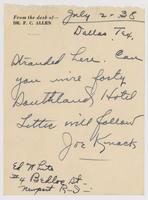 From the desk of—
DR. F. C. ALLEN
July 2-38
Dallas Tex.
Stranded here. Can
you wire forty
Southland Hotel
Letter will follow
Joe
Ed White
#4 Bedlow St
Newport R-I-